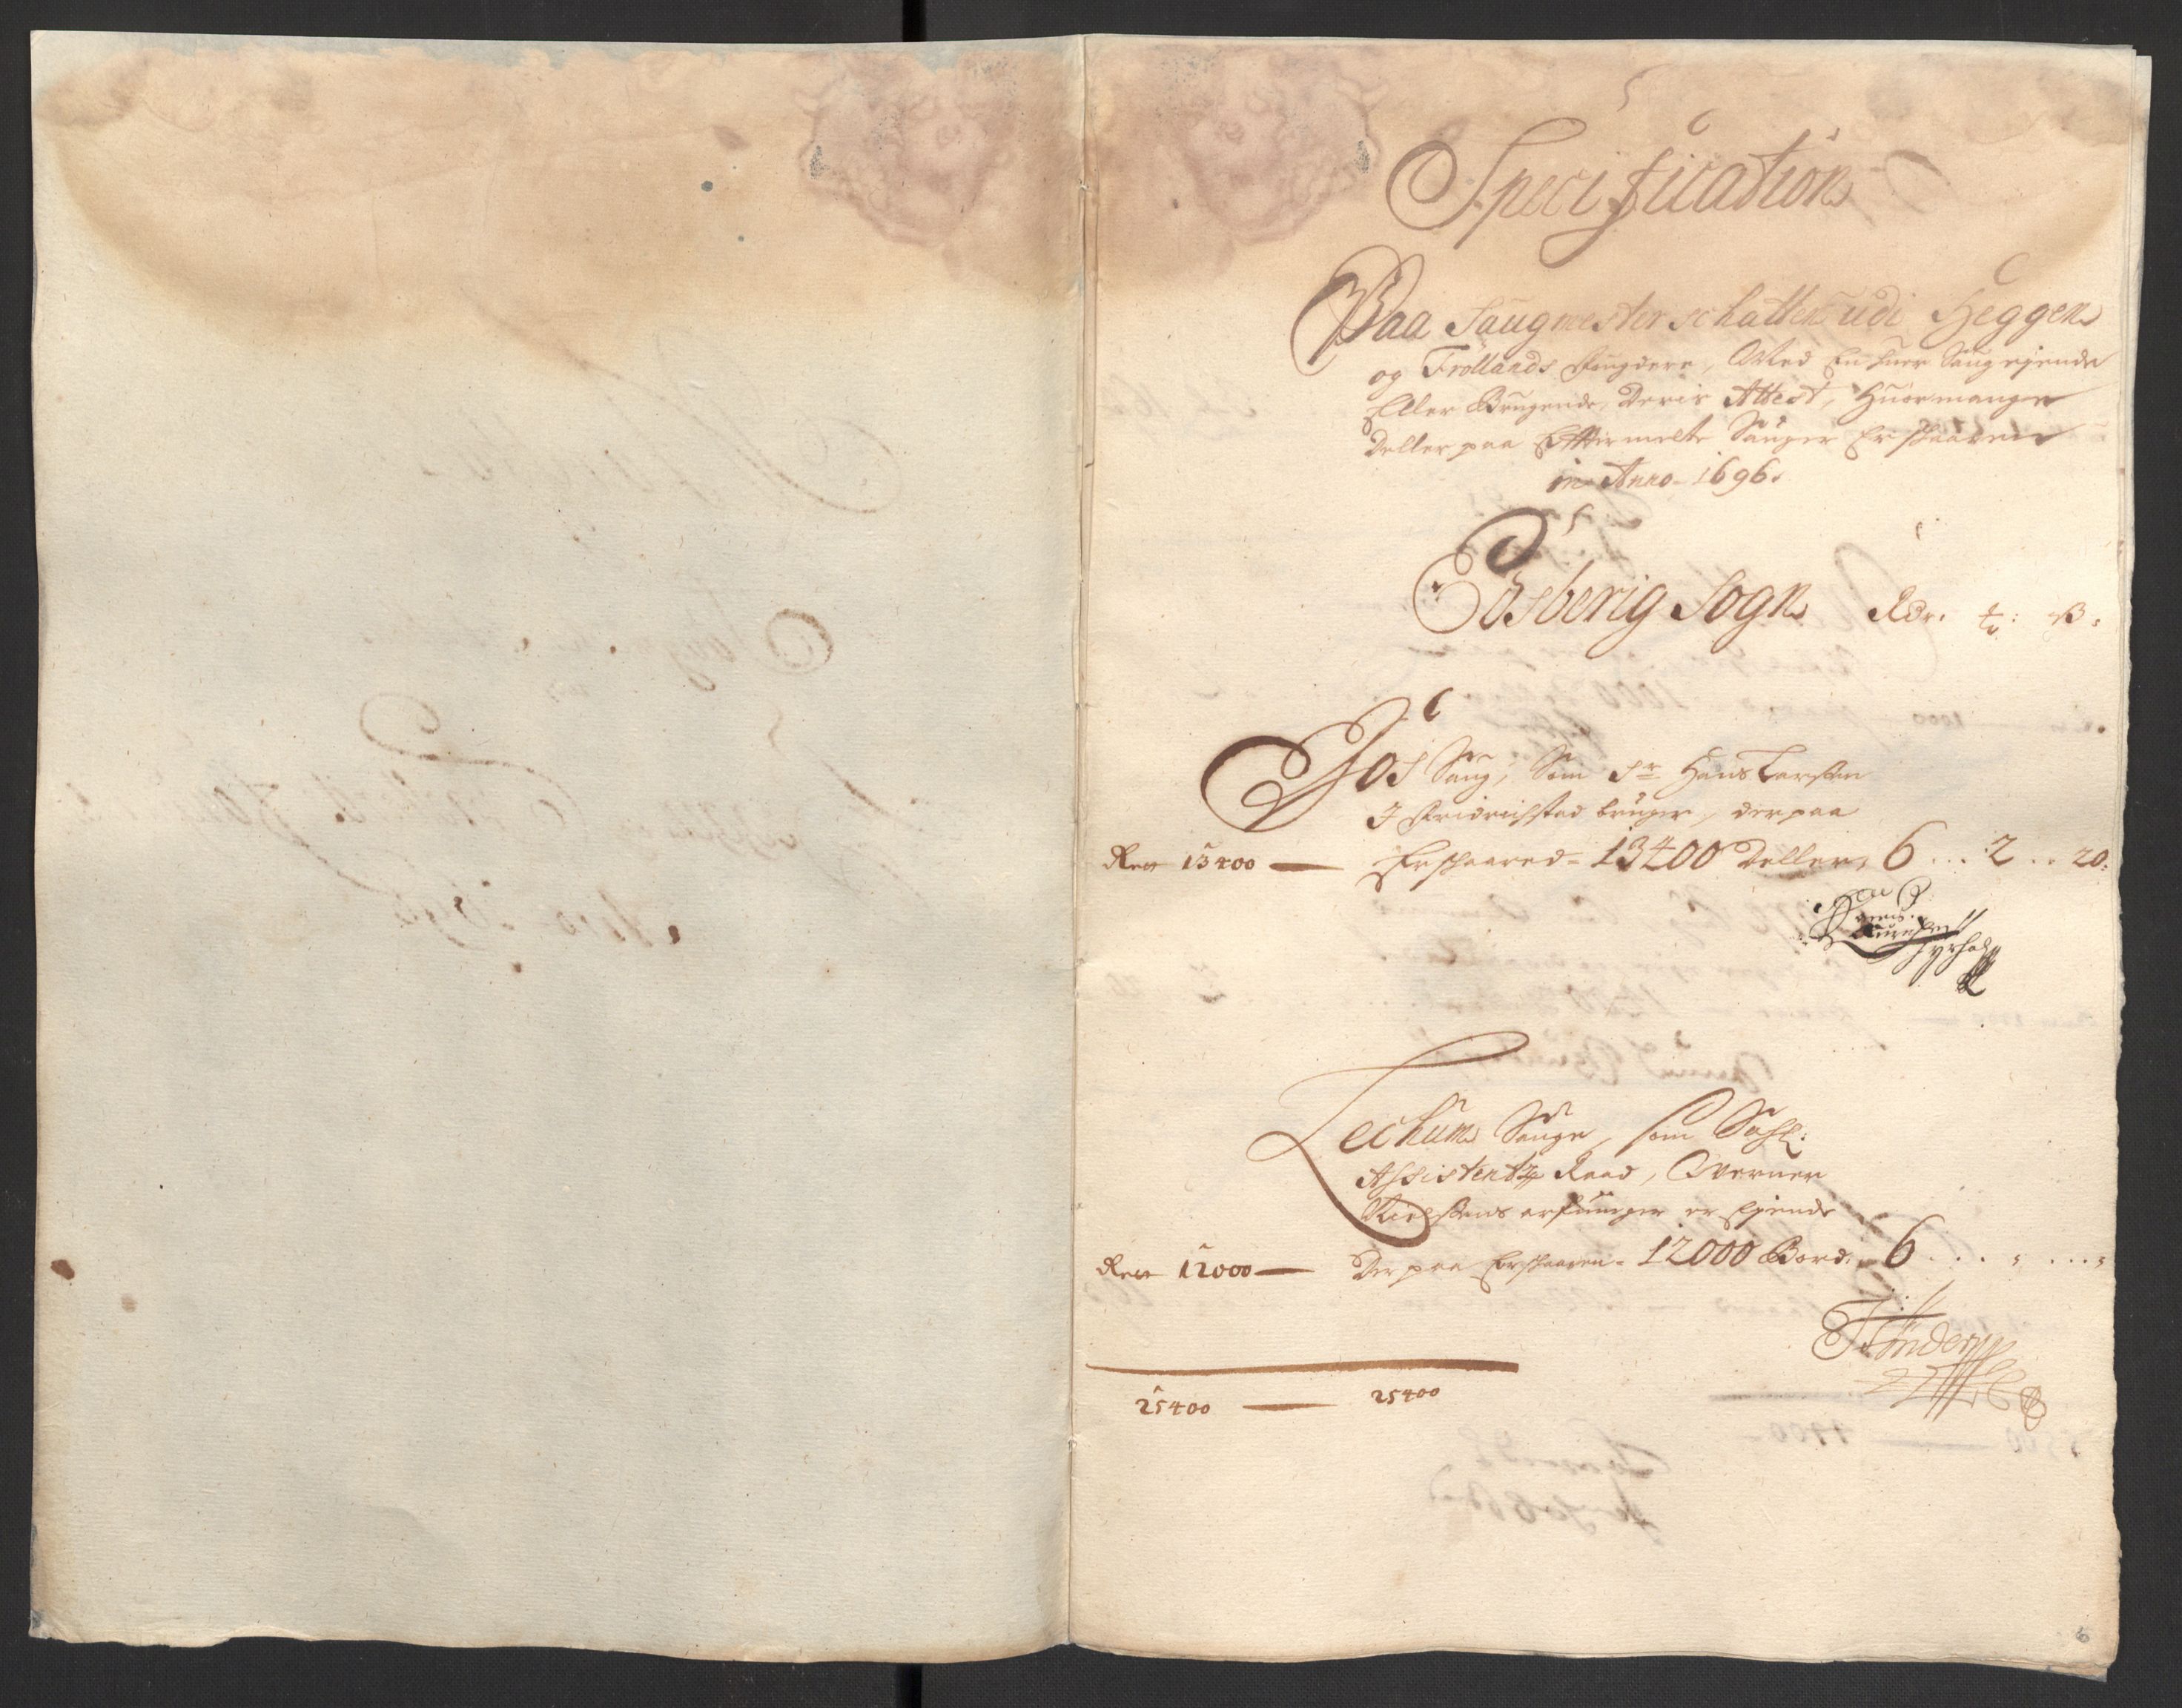 Specification
Paa Saugmester schatten udi Heggen
og Frøllands fougderi, Med En huer Saug ejende
Eller Brugende, Deris Attest, Huormange
Deller paa Efftermelte Sauger Er skaaren
in Anno 1696.
Edsberig Sogn Rdr. ß.
Fos Saug, Som Sr Hans Larsen
I Fridrichstad bruger, der paa
13400 — Er skaared 13400 Deller, 6 ... 2 .. 20.
Lechum Sauge, som Sahl:
Assistentz Raad, Werner
Nielsens arfuinger er Ejende
12000 — Der paa Er skaaren 12000 Bord. 6 . . .
Tønder
25400 — 25400
6